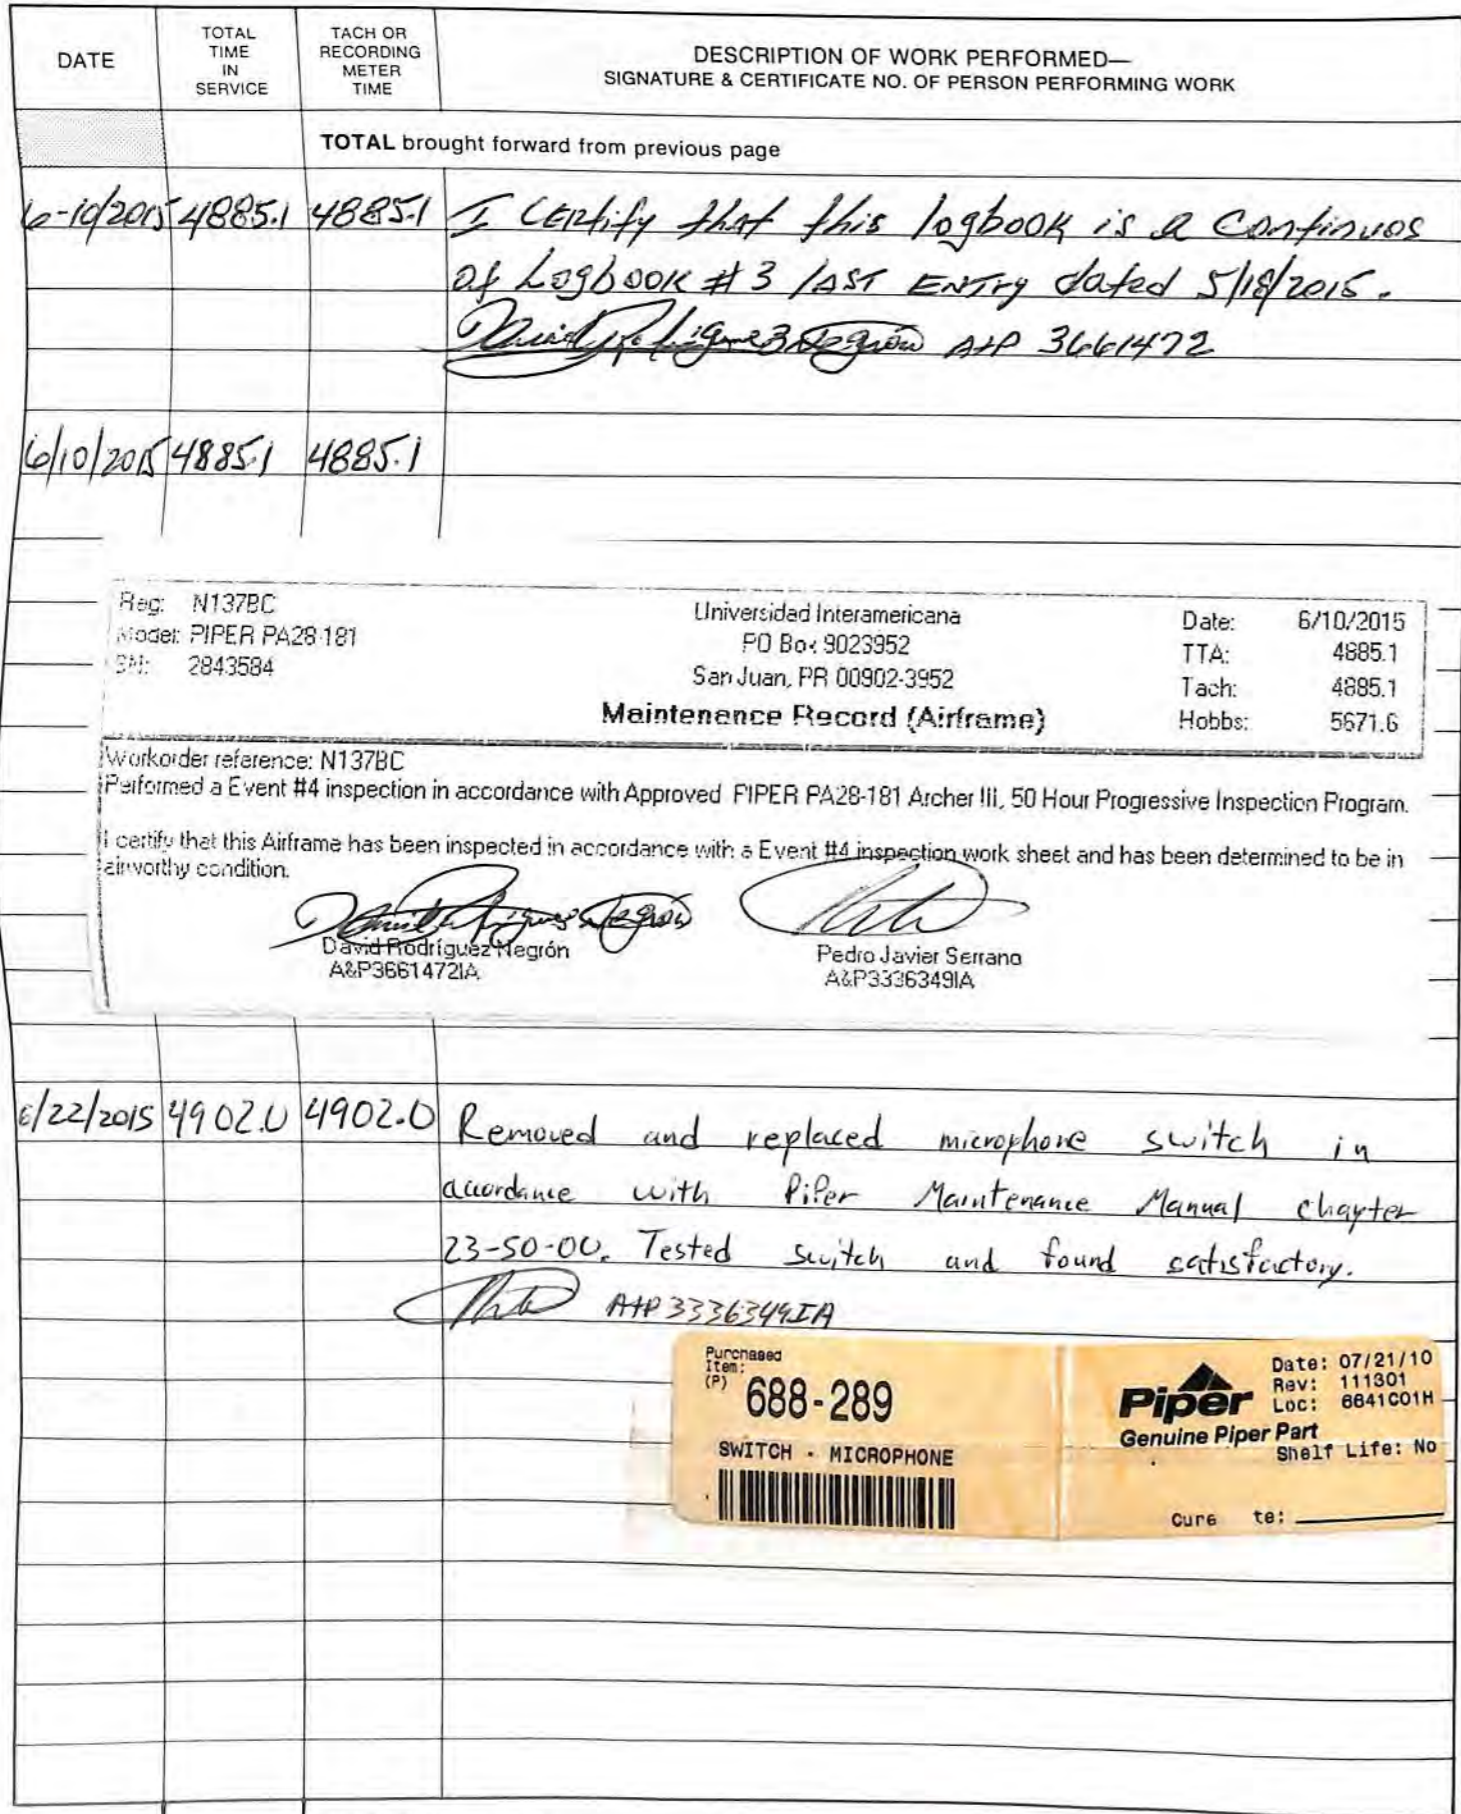 DATE
TOTAL
TIME
IN
SERVICE
TACH OR
RECORDING
METER
TIME
DESCRIPTION OF WORK PERFORMED—
SIGNATURE & CERTIFICATE NO. OF PERSON PERFORMING WORK
TOTAL brought forward from previous page
6-10/2015 4885.1 4885.1 I CERtify that this logbook is a Continuos
of Logbook #3 lAST ENTry dated 5/18/2015.
A&P 3661472
6/10/2015 4885.1 4885.1
Reg: N137BC
Model: PIPER PA28-181
SN: 2843584
Universidad Interamericana
PO Box 9023952
San Juan, PR 00902-3952
Maintenance Record (Airframe)
Date: 6/10/2015
TTA: 4885.1
Tach: 4885.1
Hobbs: 5671.6
Workorder reference: N137BC
Performed a Event #4 inspection in accordance with Approved PIPER PA28-181 Archer III, 50 Hour Progressive Inspection Program.
I certify that this Airframe has been inspected in accordance with a Event #4 inspection work sheet and has been determined to be in
airworthy condition.
David Rodríguez Negrón
A&P3661472IA
Pedro Javier Serrano
A&P3336349IA
6/22/2015 4902.0 4902.0 Removed and replaced microphone switch in
accordance with Piper Maintenance Manual chapter
23-50-00. Tested switch and found satisfactory.
A&P 3336349IA
Purchased
Item:
(P) 688-289
SWITCH - MICROPHONE
Piper
Genuine Piper Part
Date: 07/21/10
Rev: 111301
Loc: 6641C01H
Shelf Life: No
Cure te: